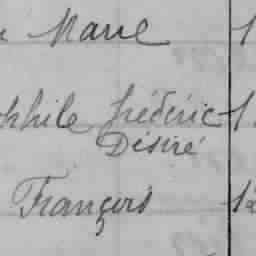 Marie 1
phile Frédéric 1
Désiré
François 12